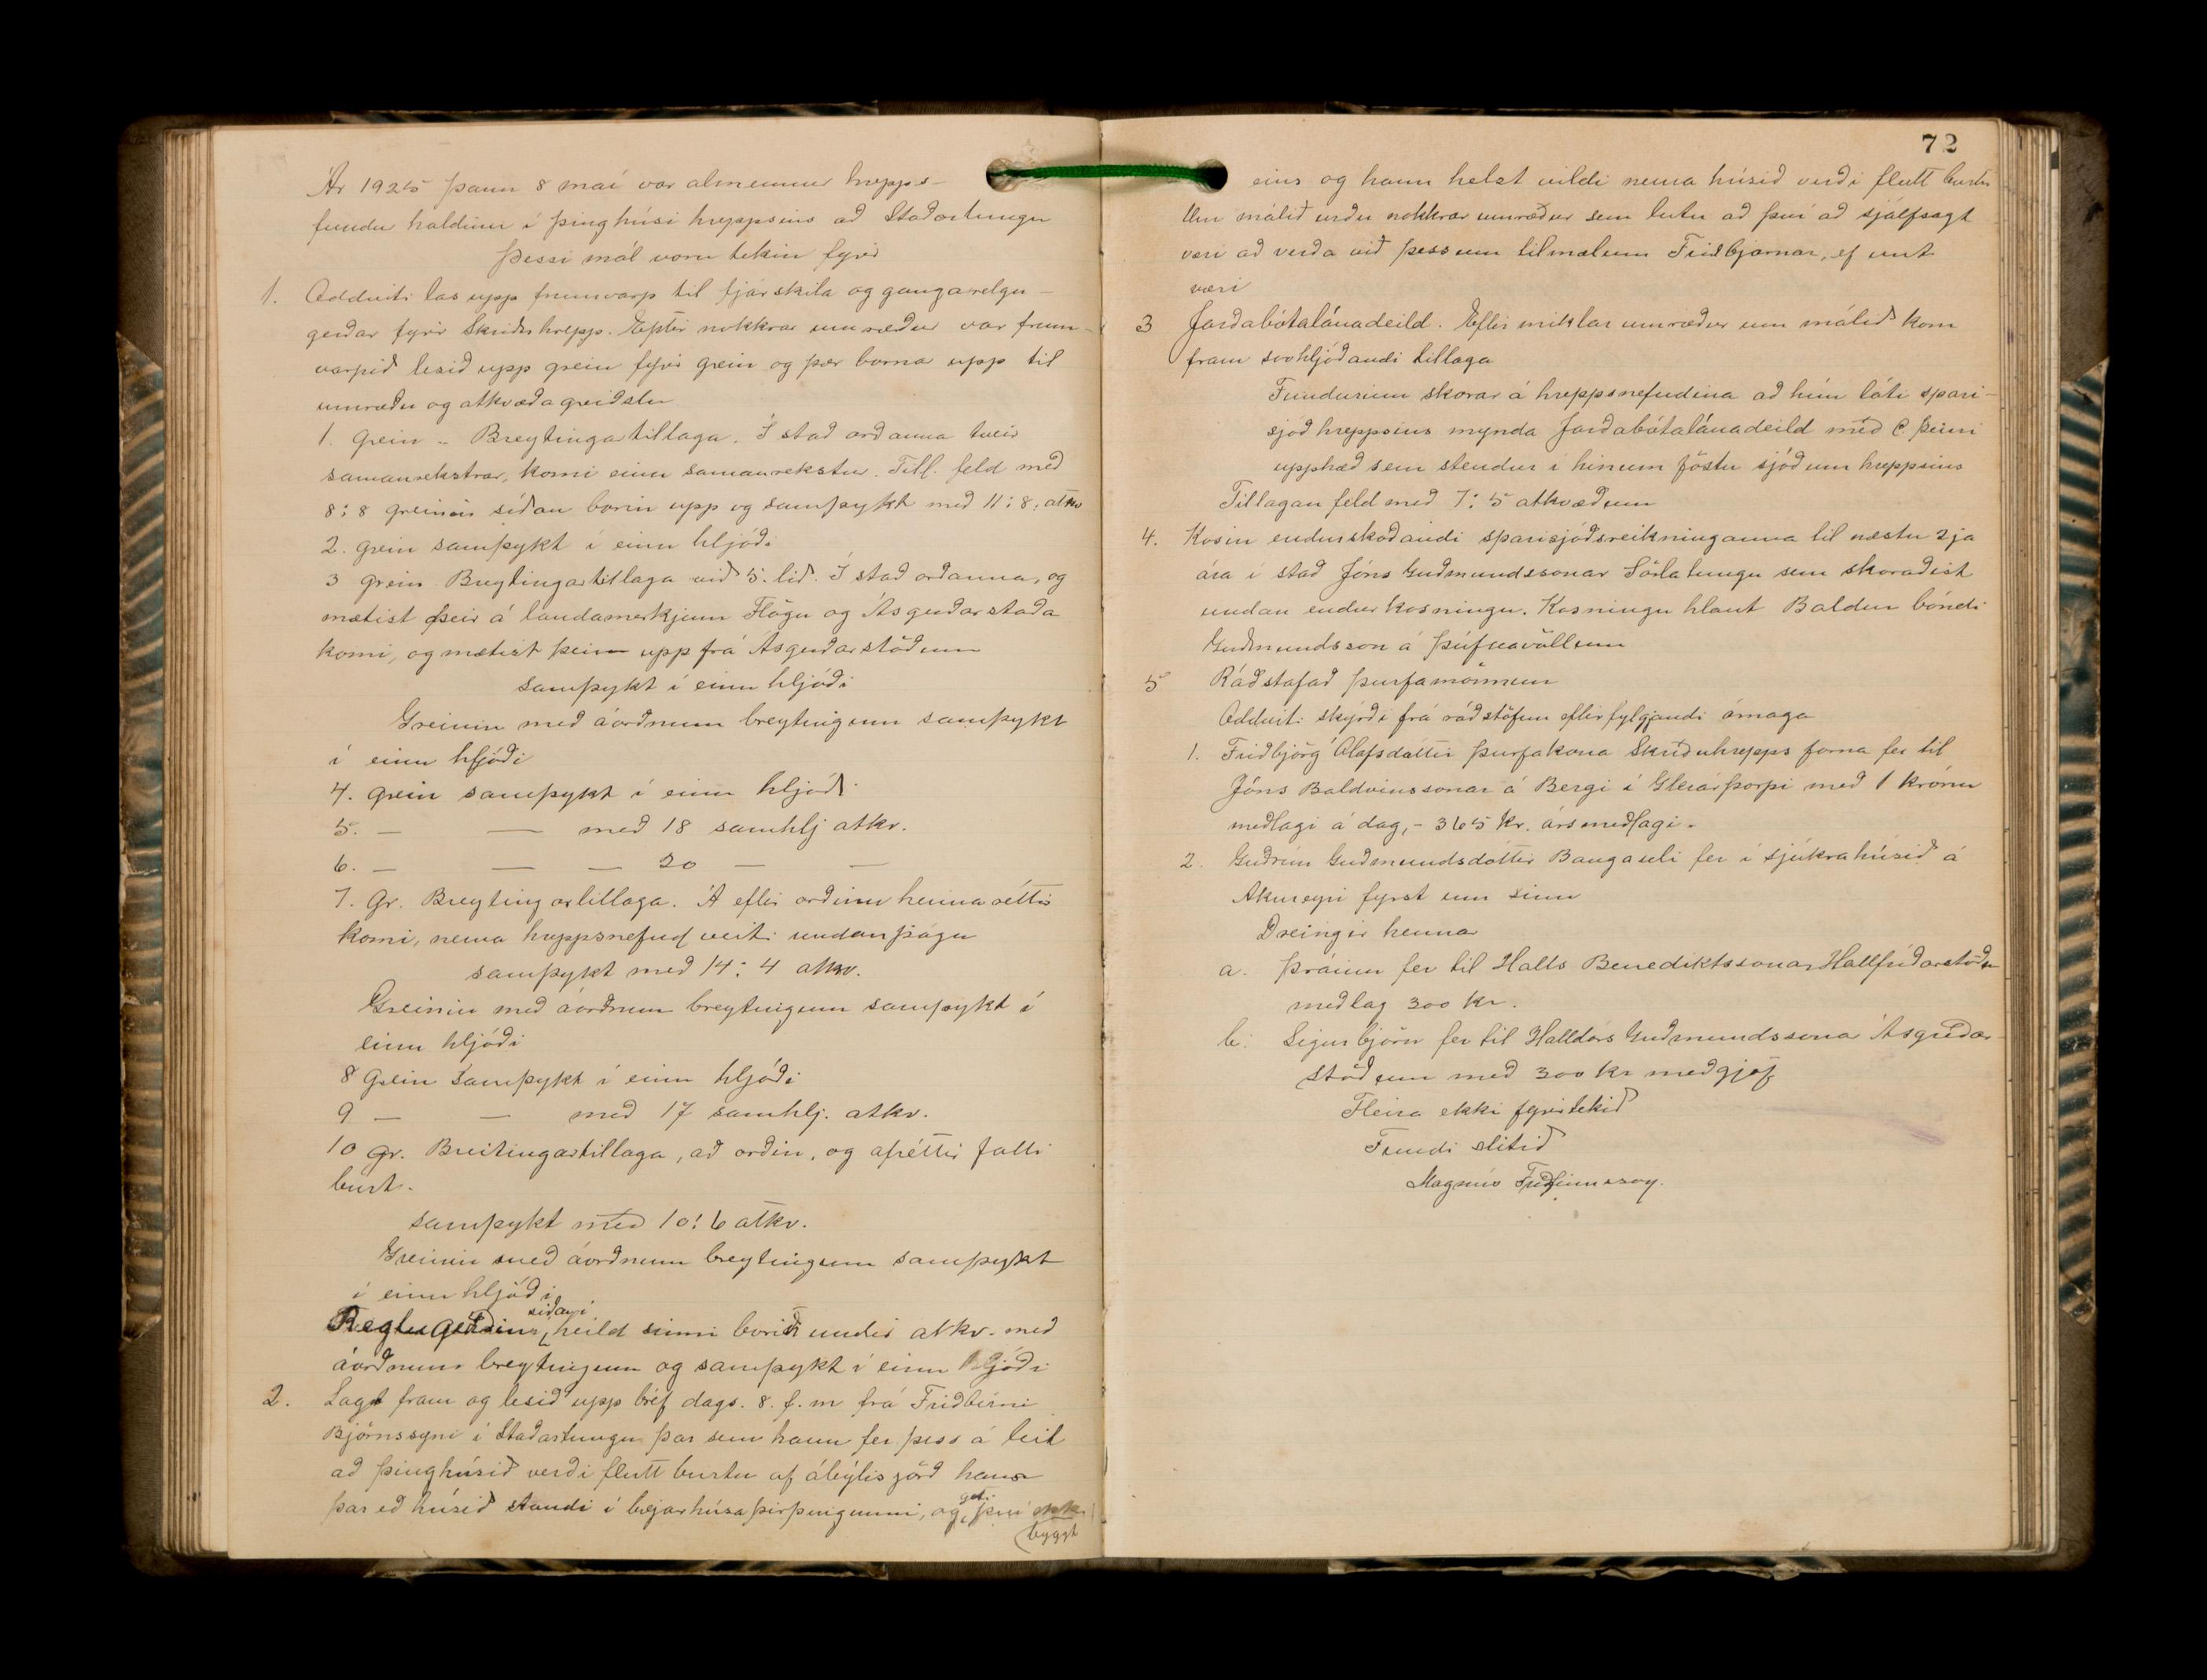 Ár 1925 þann 8 maí var almennur hrepps-
fundur haldinn í þinghúsi hreppsins að Staðartungu
Þessi mál voru tekin fyrir
1. Oddviti las upp frumvarp til fjárskila og gangareglu-
gerðar fyrir Skriðuhrepp. Eptir nokkrar umræður var frum-
varpið lesið upp grein fyrir grein og þær borna upp til
umræðu og atkvæðagreiðslu
1. grein - Breytingatillaga. Í stað orðanna tveir
samanrekstrar, komi einn samanrekstur. Till. feld með
8:8 greinin síðan borin upp og samþykt með 11:8. atkv
2. grein samþykt í einu hljóði
3 grein Breytingartillaga við 5. lið. Í stað orðanna, og
mætist þeir á landamerkjum Flögu og Ásgerðarstaða
komi, og mætist þeir upp frá Ásgerðarstöðum
samþykt í einu hljóði
Greinin með áorðnum breytingum samþykt
í einu hljóði
4. grein samþykt í einu hljóði
5. — — með 18 samhlj atkv.
6. — — — 20 — —
7. Gr. Breytingartillaga. Á eftir orðinu heimaréttir
komi, nema hreppsnefnd veiti undanþágu
samþykt með 14:4 atkv.
Greinin með áorðnum breytingum samþykt í
einu hljóði
8 Grein samþykt í einu hljóði
9 — — með 17 samhlj. atkv.
10 gr. Breitingartillaga, að orðin, og afréttir falli
burt.
samþykt með 10:6 atkv.
Greinin með áorðnum breytingum samþykt
í einu hljóði
síðan í
Reglugerðin heild sinni borin undir atkv. með
áorðnum breytingum og samþykt í einu hljóði
2. Lagt fram og lesið upp bréf dags. 8. f.m frá Friðbirni
Björnssyni í Staðartungu þar sem hann fer þess á leit
að þinghúsið verði flutt burtu af ábýlisjörð hans
þar eð húsið standi í bæjarhúsaþirpingunni, og geti því ekki
byggt
72
eins og hann helzt vildi nema húsið verði flutt burtu
Um málið urðu nokkrar umræður sem lutu að því að sjálfsagt
væri að verða við þessum tilmælum Friðbjarnar, ef unt
væri
3 Jarðabótalánadeild. Eftir miklar umræður um málið kom
fram svohljóðandi tillaga
Fundurinn skorar á hreppsnefndina að hún láti spari-
sjóð hreppsins mynda Jarðabótalánadeild með þeirri
upphæð sem stendur í hinum föstu sjóðum hreppsins
Tillagan feld með 7:5 atkvæðum
4. Kosin endurskoðandi sparisjóðsreikninganna til næstu 2ja
ára í stað Jóns Guðmundssonar Sörlatungu sem skoraðist
undan endurkosningu. Kosningu hlaut Baldur bóndi
Guðmundsson á Þúfnavöllum
5 Ráðstafað þurfamönnum
Oddviti skýrði frá ráðstöfun eftirfylgjandi ómaga
1. Friðbjörg Ólafsdóttir þurfakona Skriðuhrepps forna fer til
Jóns Baldvinssonar á Bergi í Glerárþorpi með 1 krónu
meðlagi á dag, - 365 kr. ársmeðlagi -
2. Guðrún Guðmundsdóttir Baugaseli fer í sjúkrahúsið á
Akureyri fyrst um sinn
Dreingir hennar
a. Þráinn fer til Halls Benediktssonar Hallfríðarstöðu
meðlag 300 kr.
b. Sigurbjörn fer til Halldórs Guðmundssona Ásgerðar-
stöðum með 300 kr meðgjöf
Fleira ekki fyrirtekið
Fundi slitið
Magnús Friðfinnsson.